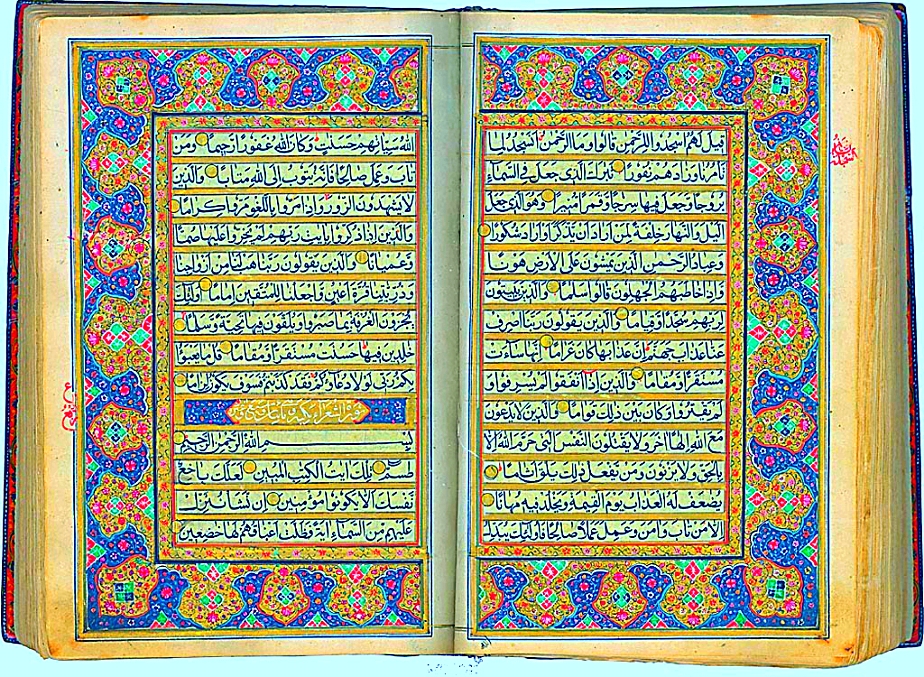 قيل لهم اسجدوا للرحمن قالوا وما الرحمن انسجد لما
تامرنا وزادهم نفورا تبرك الذى جعل فى السماء
بروجا وجعل فيها سرجا وقمرا منيرا وهو الذى جعل
اليل والنهار خلفة لمن اراد ان يذكر او اراد شكورا
وعباد الرحمن الذين يمشون على الارض هونا
واذا خاطبهم الجهلون قالوا سلما والذين يبيتون
لربهم سجدا وقياما والذين يقولون ربنا اصرف
عنا عذاب جهنم ان عذابها كان غراما انها ساءت
مستقرا ومقاما والذين اذا انفقوا لم يسرفوا و
لم يقتروا وكان بين ذلك قواما والذين لا يدعون
مع الله الها اخر ولا يقتلون النفس التى حرم الله الا
بالحق ولا يزنون ومن يفعل ذلك يلق اثاما
يضعف له العذاب يوم القيمة ويخلد فيه مهانا
الا من تاب وامن وعمل عملا صالحا فاولئك يبدل
الله سياتهم حسنت وكان الله غفورا رحيما ومن
تاب وعمل صالحا فانه يتوب الى الله متابا والذين
لا يشهدون الزور واذا مروا باللغو مروا كراما
والذين اذا ذكروا بايت ربهم لم يخروا عليها صما
وعميانا والذين يقولون ربنا هب لنا من ازواجنا
وذريتنا قرة اعين واجعلنا للمتقين اماما اولئك
يجزون الغرفة بما صبروا ويلقون فيها تحية وسلما
خلدين فيها حسنت مستقرا ومقاما قل ما يعبؤا
بكم ربى لولا دعاؤكم فقد كذبتم فسوف يكون لزاما
بسم الله الرحمن الرحيم
طسم تلك ايت الكتب المبين لعلك باخع
نفسك الا يكونوا مؤمنين ان نشا ننزل
عليهم من السماء اية فظلت اعناقهم لها خضعين